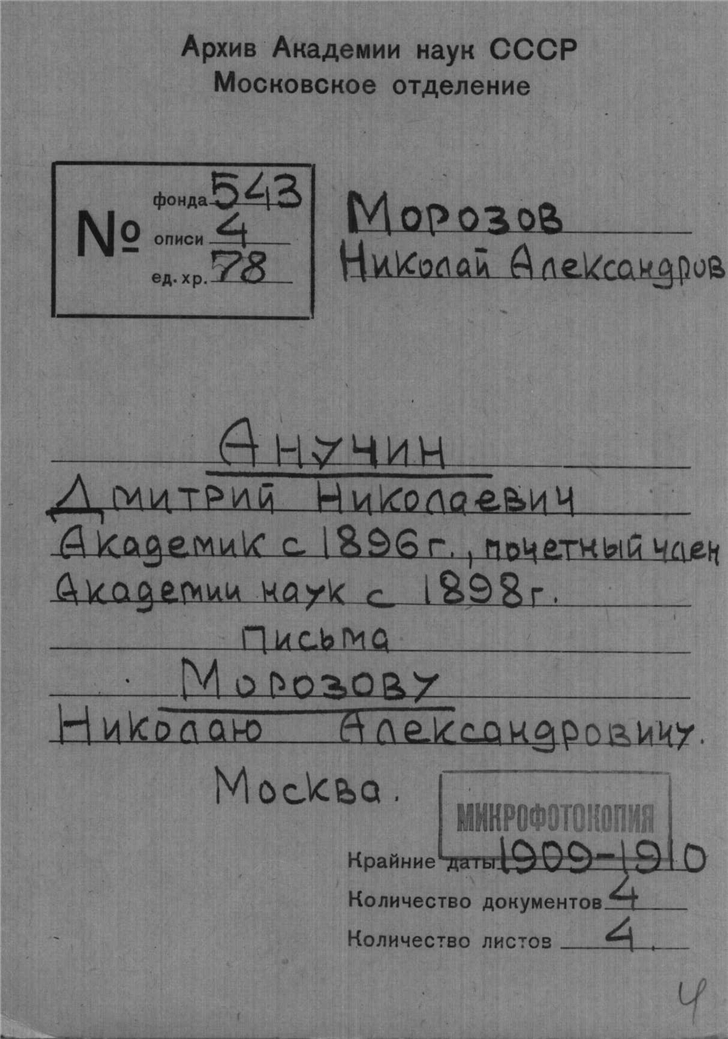 Архив Академии наук СССР
Московское отделение
№ фонда 543
описи 4
ед. хр. 78
Морозов
Николай Александров
Анучин
Дмитрий Николаевич
Академик с 1896 г., почетный член
Академии наук с 1898 г.
Письма
Морозову
Николаю Александровичу.
Москва.
МИКРОФОТОКОПИЯ
Крайние даты 1909-1910
Количество документов 4
Количество листов 4.
4